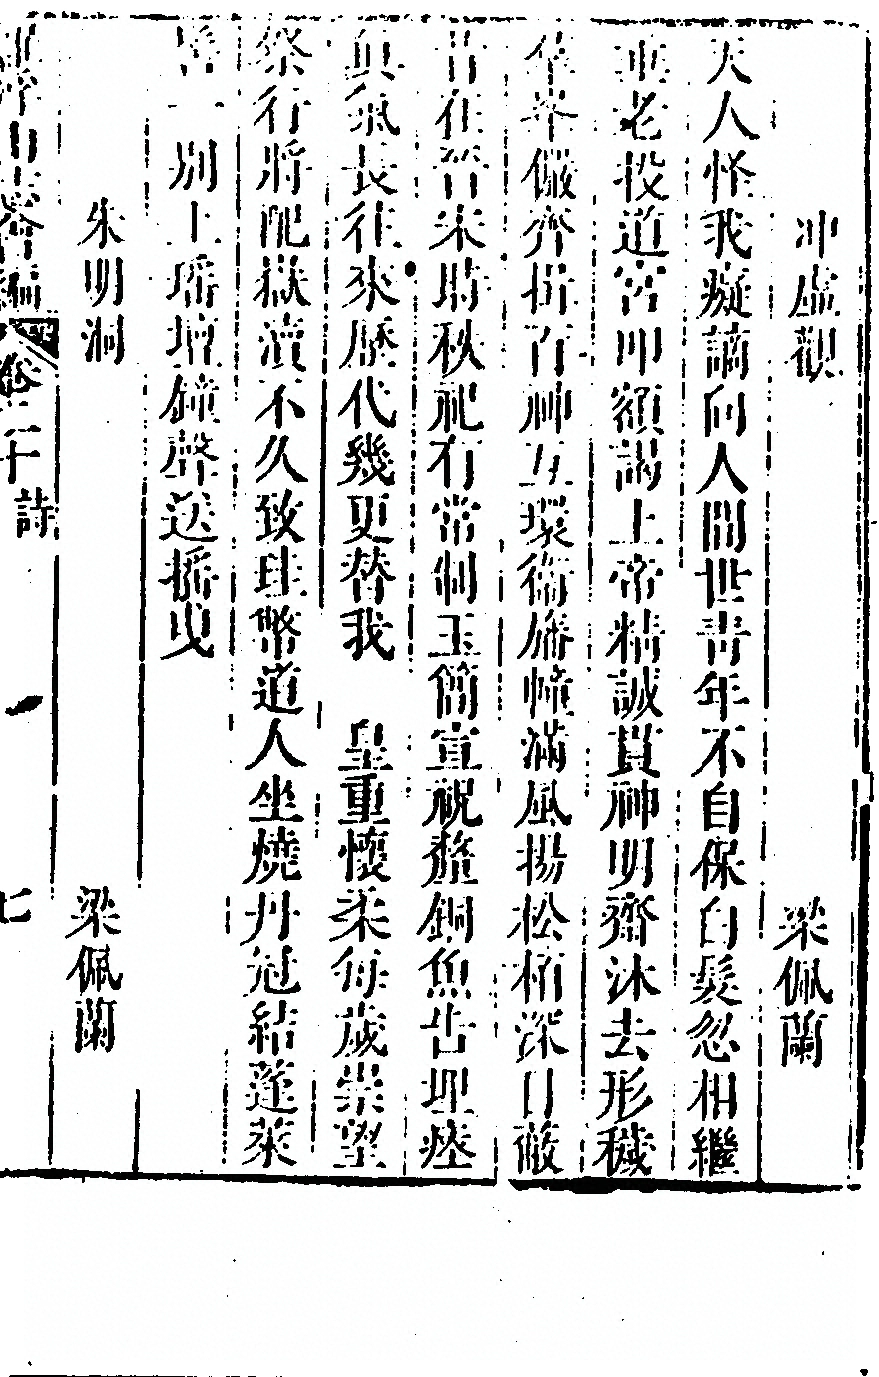 冲虛觀 梁佩蘭
天人怪我癡謫向人間世青年不自保白髮忽相繼
垂老投道宮叩額謁上帝精誠貫神明齋沐去形穢
羣峯儼齊揖百神互環衞旛幢滿風揚松栢深日蔽
昔在晉宋時秩祀有常制玉簡宣祝釐銅魚告埋瘞
眞氣長往來歷代幾更替我 皇重懷柔每歲崇望
祭行將配嶽瀆不久致珪幣道人坐燒丹冠結蓬萊
髻一別上瑤壇鐘聲送搖曳
朱明洞 梁佩蘭
羅浮山志會編 卷二十 詩 七